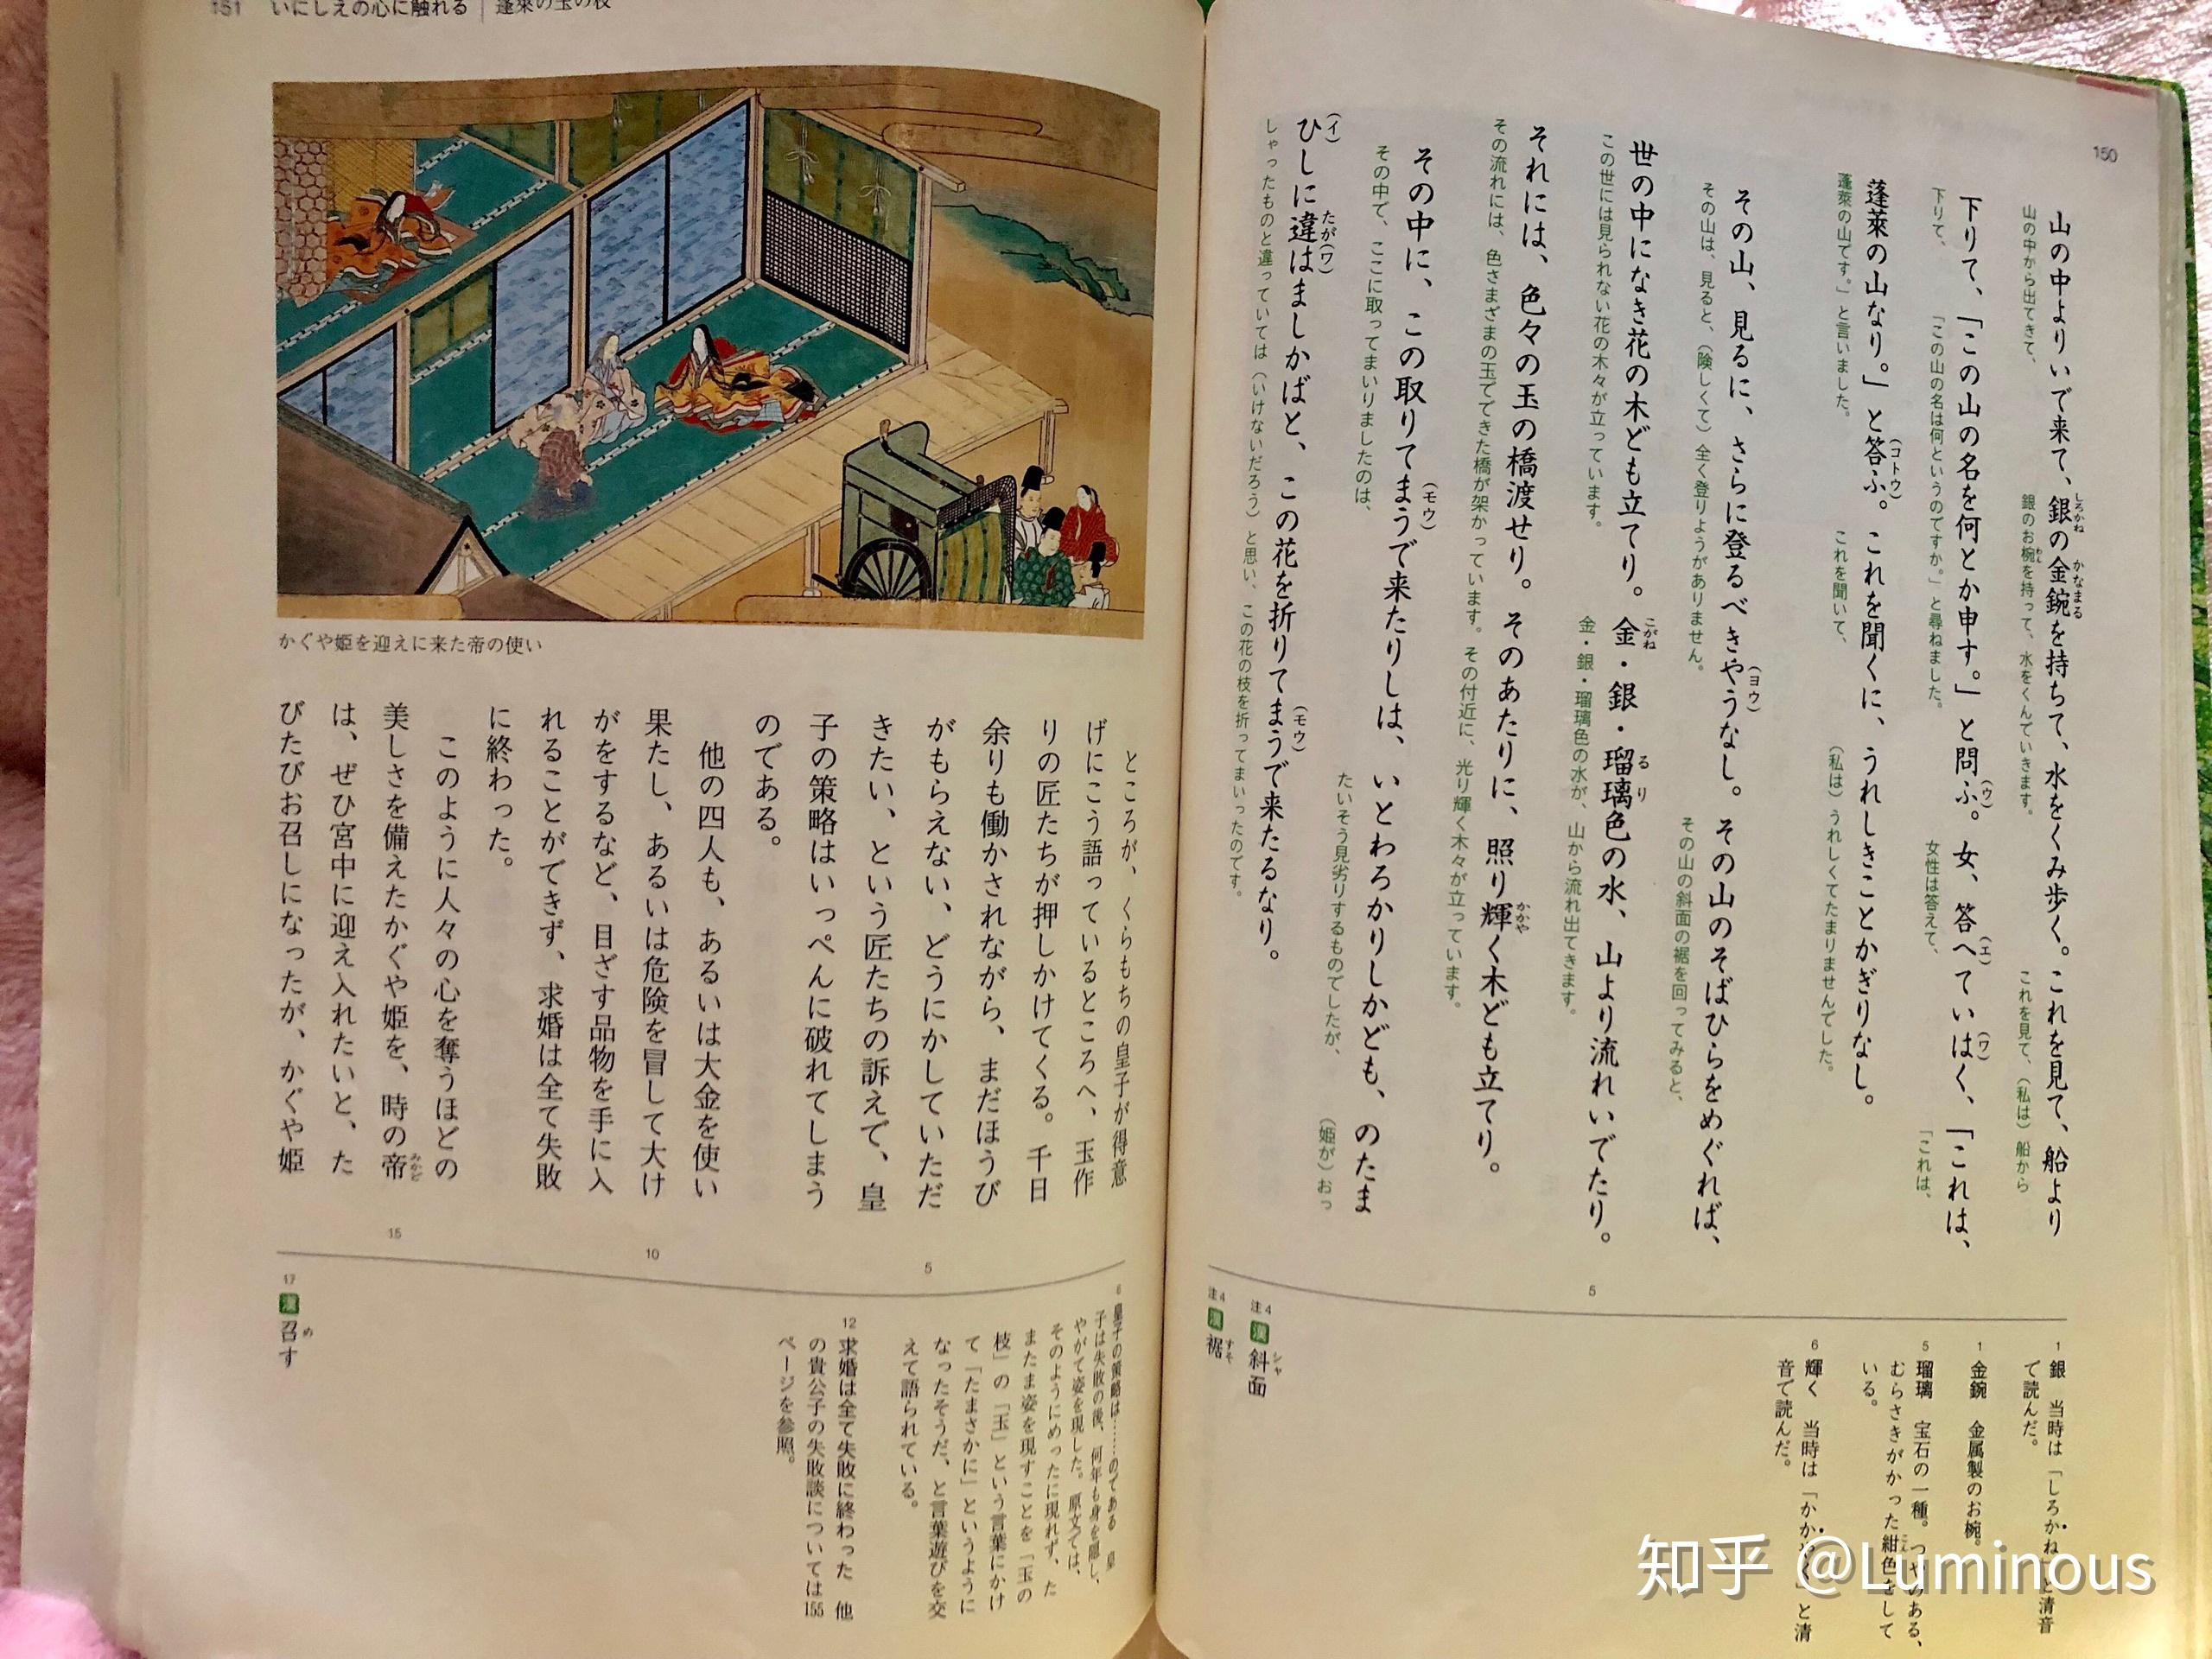 150
山の中よりいで来て、銀の金鋺を持ちて、水をくみ歩く。これを見て、船より
しろかね
かなまる
山の中から出てきて、
銀のお椀を持って、水をくんでいきます。
わん
これを見て、（私は）船から
下りて、「この山の名を何とか申す。」と問ふ。女、答へていはく、「これは、
（ウ）
（エ）
（ワ）
下りて、
「この山の名は何というのですか。」と尋ねました。
女性は答えて、
「これは、
蓬萊の山なり。」と答ふ。これを聞くに、うれしきことかぎりなし。
（コトウ）
蓬萊の山です。」と言いました。
これを聞いて、
（私は）うれしくてたまりませんでした。
その山、見るに、さらに登るべきやうなし。その山のそばひらをめぐれば、
（ヨウ）
その山は、見ると、（険しくて）全く登りようがありません。
その山の斜面の裾を回ってみると、
世の中になき花の木ども立てり。金・銀・瑠璃色の水、山より流れいでたり。
こがね
るり
この世には見られない花の木々が立っています。
金・銀・瑠璃色の水が、山から流れ出てきます。
それには、色々の玉の橋渡せり。そのあたりに、照り輝く木ども立てり。
かかや
その流れには、色さまざまの玉でできた橋が架かっています。
その付近に、光り輝く木々が立っています。
その中に、この取りてまうで来たりしは、いとわろかりしかども、のたま
（モウ）
その中で、ここに取ってまいりましたのは、
たいそう見劣りするものでしたが、
（姫が）おっ
ひしに違はましかばと、この花を折りてまうで来たるなり。
（イ）
たが（ワ）
（モウ）
しゃったものと違っていては（いけないだろう）と思い、この花の枝を折ってまいったのです。
5
1 銀　当時は「しろかね」と清音
で読んだ。
1 金鋺　金属製のお椀。
5 瑠璃　宝石の一種。つやのある、
むらさきがかった紺色をして
いる。
6 輝く　当時は「かかやく」と清
音で読んだ。
注4 漢 斜面
シャ
注4 漢 裾
すそ
151 いにしえの心に触れる｜蓬萊の玉の枝
かぐや姫を迎えに来た帝の使い
ところが、くらもちの皇子が得意
げにこう語っているところへ、玉作
りの匠たちが押しかけてくる。千日
余りも働かされながら、まだほうび
がもらえない、どうにかしていただ
きたい、という匠たちの訴えで、皇
子の策略はいっぺんに破れてしまう
のである。
他の四人も、あるいは大金を使い
果たし、あるいは危険を冒して大け
がをするなど、目ざす品物を手に入
れることができず、求婚は全て失敗
に終わった。
このように人々の心を奪うほどの
美しさを備えたかぐや姫を、時の帝
みかど
は、ぜひ宮中に迎え入れたいと、た
びたびお召しになったが、かぐや姫
5
10
15
6 皇子の策略は……のである　皇
子は失敗の後、何年も身を隠し、
やがて姿を現した。原文では、
そのようにめったに現れず、た
またま姿を現すことを「玉の
枝」の「玉」という言葉にかけ
て「たまさかに」というように
なったそうだ、と言葉遊びを交
えて語られている。
12 求婚は全て失敗に終わった　他
の貴公子の失敗談については155
ページを参照。
17 漢 召す
め
知乎 @Luminous